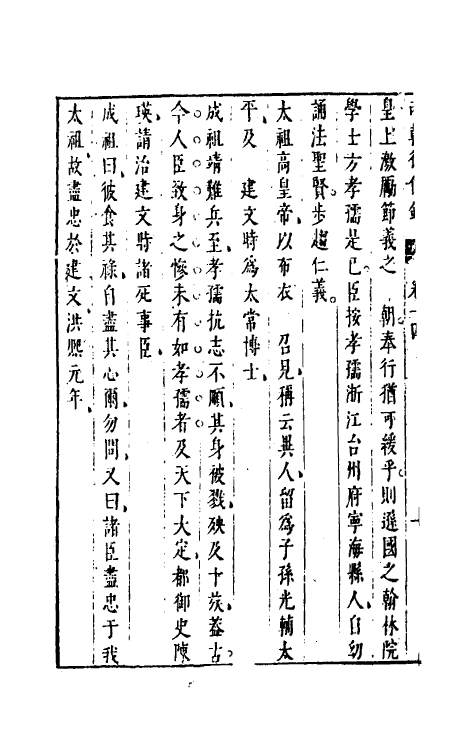 卷十四
皇上激勵節義之　朝奉行猶可緩乎則遜國之翰林院
學士方孝孺是已臣按孝孺浙江台州府寧海縣人自幼
誦法聖賢步趨仁義
太祖高皇帝以布衣　召見稱云異人留爲子孫光輔太
平及　建文時爲太常博士
成祖靖難兵至孝孺抗志不順其身被戮殃及十族蓋古
今人臣致身之慘未有如孝孺者及天下大定都御史陳
瑛請治建文時諸死事臣
成祖曰彼食其祿自盡其心爾勿問又曰諸臣盡忠于我
太祖故盡忠於建文洪熙元年